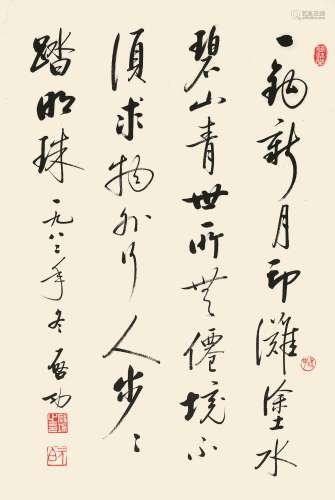 一钩新月印灘塗水
碧山青世所無僊境不
須求物外行人步〻
踏明珠 一九八二年冬 啟功